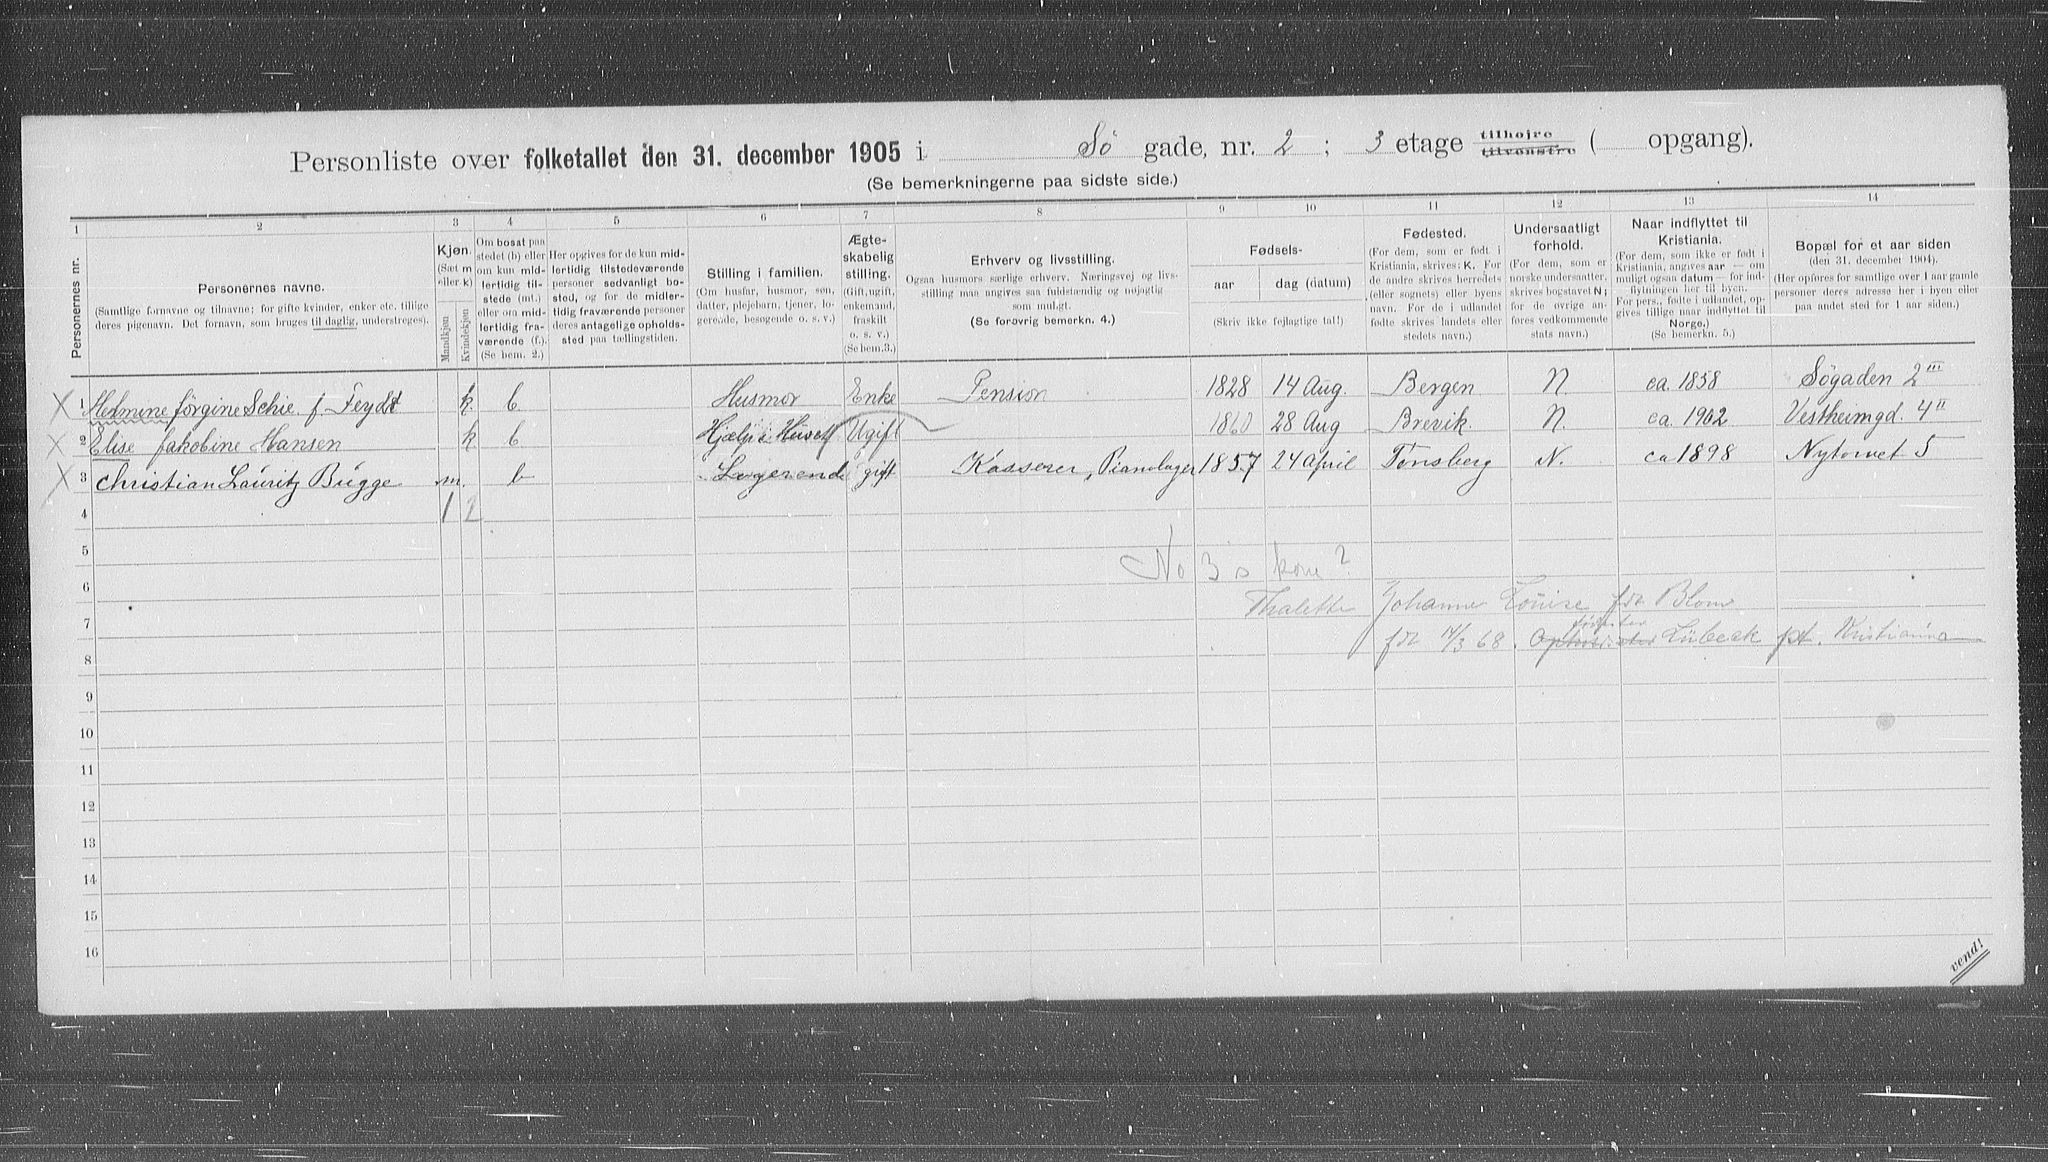 Personliste over folketallet den 31. december 1905 i Sö gade, nr. 2 ; 3 etage tilhøjre tilvenstre ( opgang).
(Se bemerkningerne paa sidste side.)
1 2 3 4 5 6 7 8 9 10 11 12 13 14
Personernes nr.
Personernes navne.
(Samtlige fornavne og tilnavne; for gifte kvinder, enker etc. tillige
deres pigenavn. Det fornavn, som bruges til daglig, understreges).
Kjøn.
(Sæt m
eller k)
Mandkjøn
Kvindekjøn
Om bosat paa
stedet (b) eller
om kun mid-
lertidig til-
stede (mt.)
eller om mid-
lertidig fra-
værende (f.).
(Se bem. 2.)
Her opgives for de kun mid-
lertidig tilstedeværende
personer sedvanligt bo-
sted, og for de midler-
tidig fraværende personer
deres antagelige opholds-
sted paa tællingstiden.
Stilling i familien.
(Om husfar, husmor, søn,
datter, plejebarn, tjener, lo-
gerende, besøgende o. s. v.)
Ægte-
skabelig
stilling.
(Gift, ugift,
enkemand,
fraskilt
o. s. v.)
(Se bem. 3.)
Erhverv og livsstilling.
Ogsaa husmors særlige erhverv. Næringsvej og livs-
stilling maa angives saa fuldstændig og nøjagtig
som muligt.
(Se forøvrig bemerkn. 4.)
Fødsels-
aar dag (datum)
(Skriv ikke fejlagtige tal!)
Fødested.
(For dem, som er født i
Kristiania, skrives: K. For
de andre skrives herredets
(eller sognets) eller byens
navn. For de i udlandet
fødte skrives landets eller
stedets navn.)
Undersaatligt
forhold.
(For dem, som er
norske undersaatter,
skrives bogstavet N;
for de øvrige an-
føres vedkommende
stats navn.)
Naar indflyttet til
Kristiania.
(For dem, som ikke er født i
Kristiania, angives aar — om
muligt ogsaa datum — for ind-
flytningen her til byen.
For pers., fødte i udlandet, op-
gives tillige naar indflyttet til
Norge.)
(Se bemerkn. 5.)
Bopæl for et aar siden
(den 31. december 1904).
(Her opføres for samtlige over 1 aar gamle
personer deres adresse her i byen eller
paa andet sted for 1 aar siden.)
X 1 Helmine Jörgine Schie f. Feydt k. b Husmor Enke Pension 1828 14 Aug. Bergen N ca. 1858 Søgaden 2 III
X 2 Elise Jakobine Hansen k b Hjælp i Huset Ugift 1860 28 Aug Brevik. N. ca. 1902 Vestheimgd. 4 II
X 3 Christian Lauritz Bugge m. b Logerende gift Kasserer, Pianolager 1857 24 April Tönsberg N. ca 1898 Nytorvet 5
4 1 2
5
No 3 s kone?
6
Thalette Johanne Louise föd Blom
7
född 14/3 68. Lübeck pt. Kristiania
8
9
10
11
12
13
14
15
16
vend!